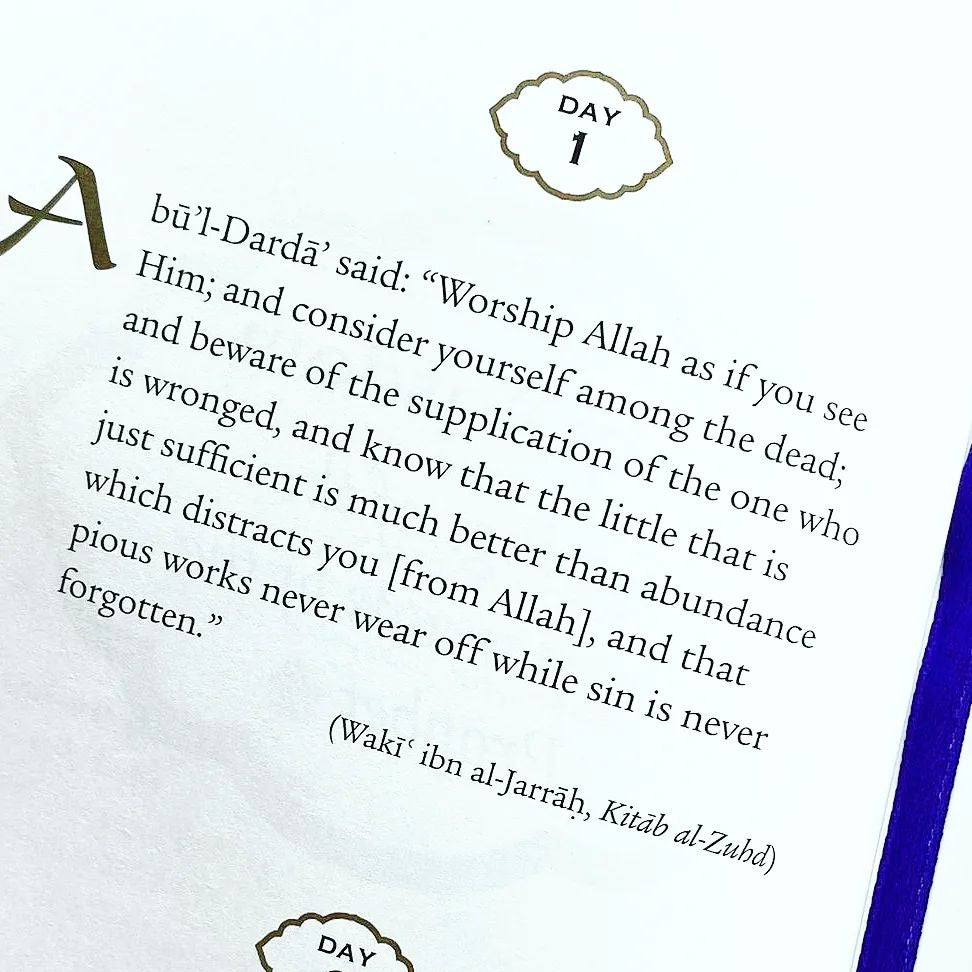 DAY
1
Abū’l-Dardā’ said: “Worship Allah as if you see
Him; and consider yourself among the dead;
and beware of the supplication of the one who
is wronged, and know that the little that is
just sufficient is much better than abundance
which distracts you [from Allah], and that
pious works never wear off while sin is never
forgotten.”
(Wakīʿ ibn al-Jarrāḥ, Kitāb al-Zuhd)
DAY